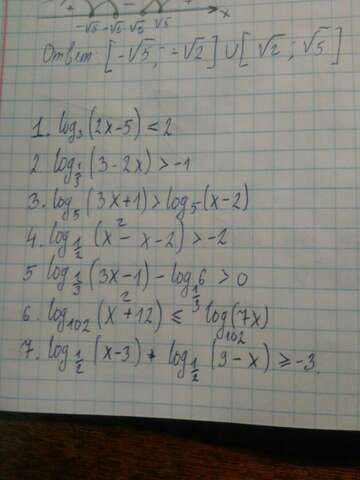 + + x
-√5 -√2 √2 √5
Ответ: [-√5; -√2] ∪ [√2; √5]
1. log₃(2x-5) < 2
2 log_{1/3}(3-2x) > -1
3. log₅(3x+1) > log₅(x-2)
4. log_{1/2}(x²-x-2) > -2
5 log_{1/3}(3x-1) - log_{1/3}6 > 0
6. log_{102}(x²+12) ≤ log_{102}(7x)
7. log_{1/2}(x-3) + log_{1/2}(9-x) ≥ -3